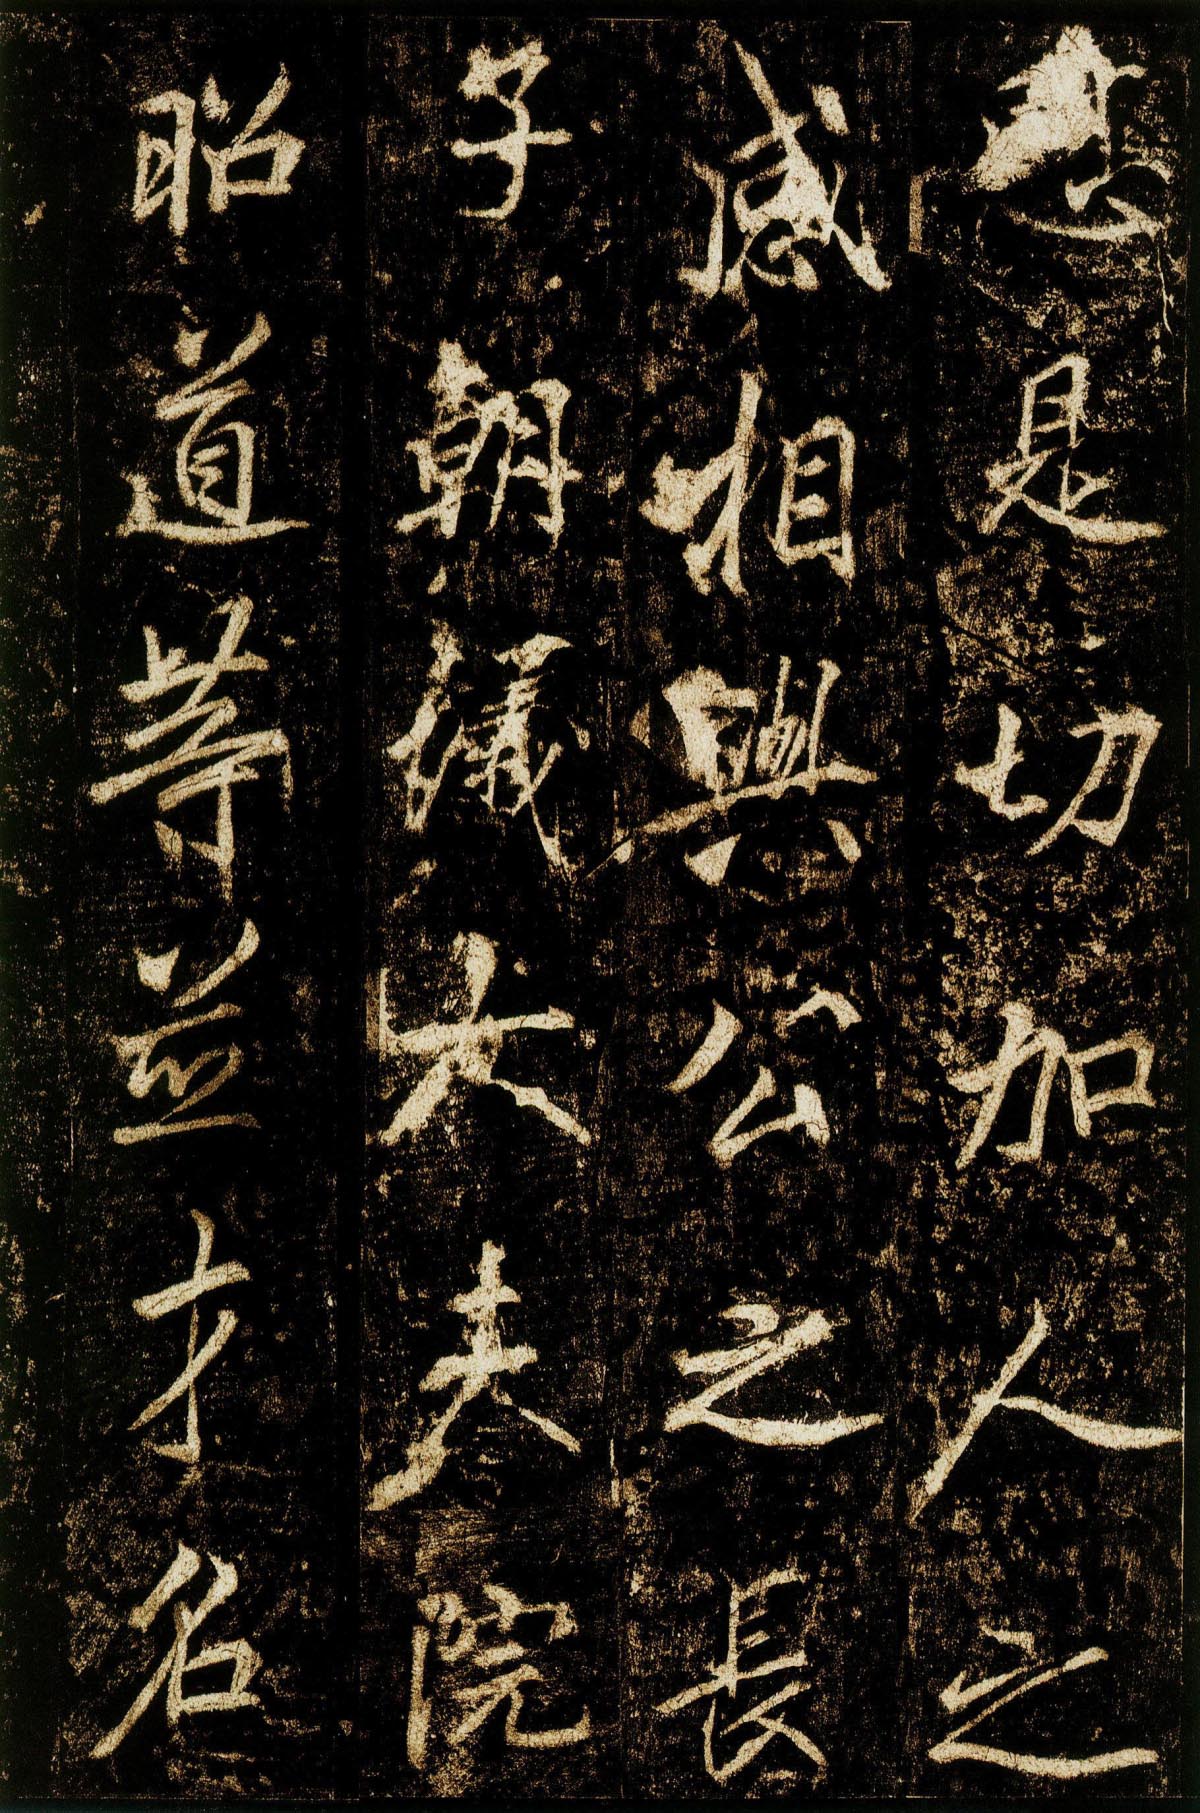 是切加人之
感相與公之長
子朝儀大夫院
昭道等並才名